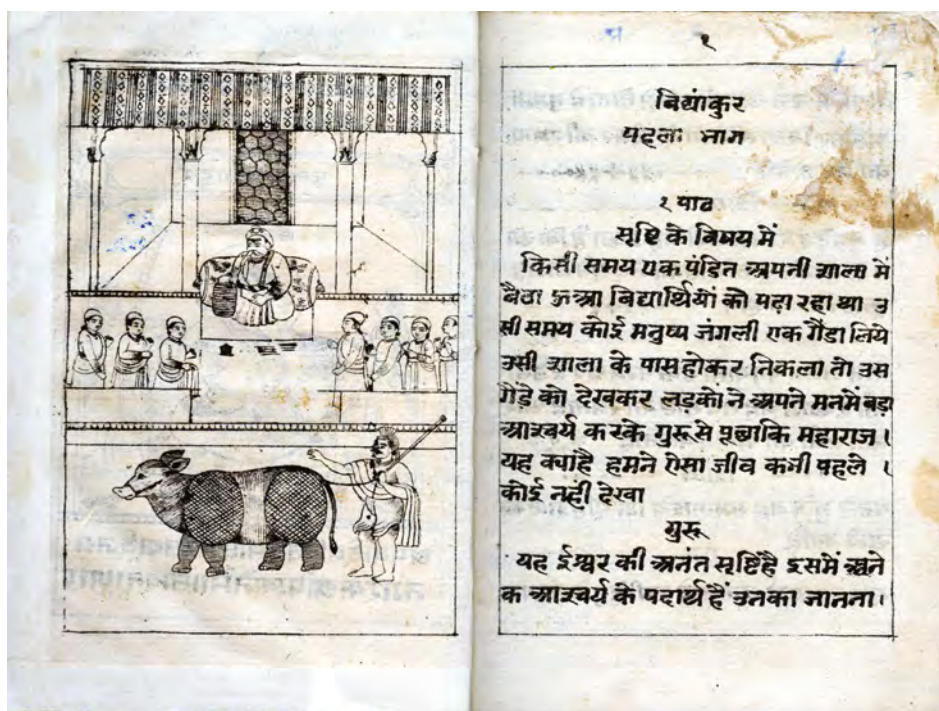 १
बिद्यांकुर
पहला भाग
१ पाठ
सृष्टि के विषय में
किसी समय एक पंडित अपनी शाला में
बैठा हुआ बिद्यार्थियों को पढ़ा रहा था उ
सी समय कोई मनुष्य जंगली एक गैंडा लिये
उसी शाला के पास होकर निकला तो उस
गैंडे को देखकर लड़कों ने अपने मनमें बड़ा
आश्चर्य करके गुरू से पूछा कि महाराज ।
यह क्या है हमने ऐसा जीव कभी पहले ।
कोई नहीं देखा
गुरू
यह ईश्वर की अनंत सृष्टि है इसमें अने
क आश्चर्य के पदार्थ हैं उनका जानना ।